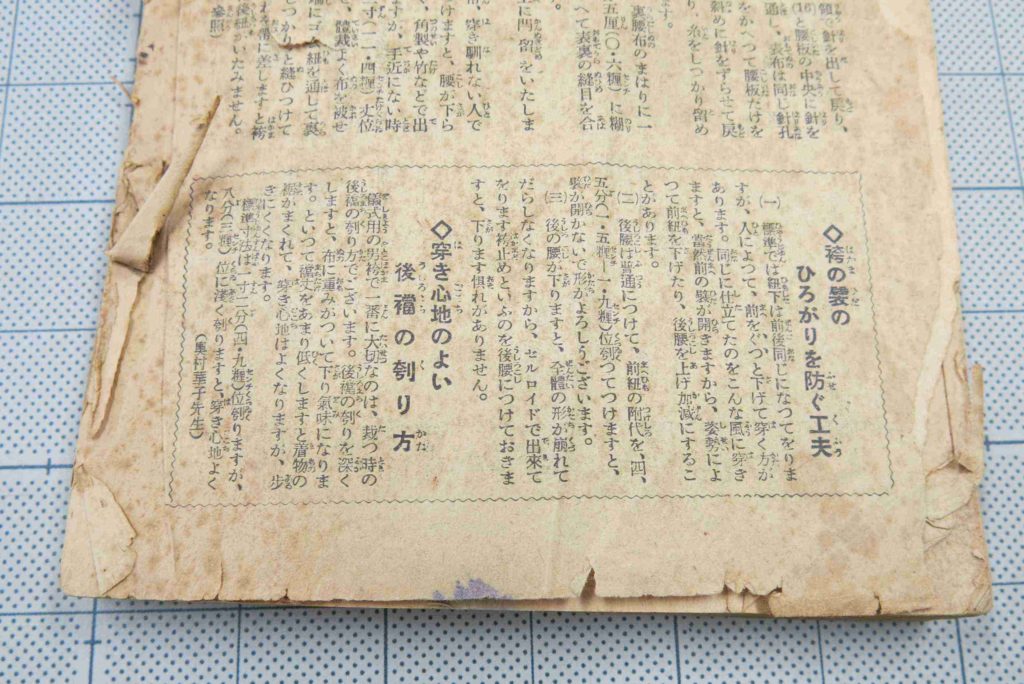 領で針を出して戻り、
(16)と腰板の中央に針を
通し、表布は同じ針孔
をかへつて腰板だけを
斜めに針をずらせて戻
り、糸をしつかり留め
ます。
裏腰布のまはりに一
五厘(〇・六糎)に糊
へて表裏の縫目を合
に閂留をいたしま
常、穿き馴れない人で
けますと、腰が下ら
、角製や竹などで出
ますが、手近にない時
寸(一一・四糎)丈位
體裁よく布を被せ
端に二紐を通して裏
しつかりと縫ひつけて
れを帶に差しますと袴
後紐がいたみません。
參照)
◇袴の襞の
ひろがりを防ぐ工夫
(一) 標準では紐下は前後同じになつてをりま
すが、人によつて、前をぐつと下げて穿く方が
あります。同じに仕立てたのをこんな風に穿き
ますと、當然前の襞が開きますから、姿勢によ
つて前紐を下げたり、後腰を上げ加減にするこ
とがあります。
(二) 後腰は普通につけて、前紐の附代を、四、
五分(一・五糎―一・九糎)位刳つてつけますと、
襞が開かないで形がよろしうございます。
(三) 後の腰が下りますと、全體の形が崩れて
だらしなくなりますから、セルロイドで出來て
をります袴止めといふのを後腰につけておきま
すと、下ります惧れがありません。
◇穿き心地のよい
後襠の刳り方
儀式用の男袴で一番に大切なのは、裁つ時の
後襠の刳り方でございます。後襠の刳りを深く
しますと、布に重みがついて下り氣味になりま
す。といつて襠丈をあまり低くしますと着物の
裾がまくれて、穿き心地はよくなりますが、歩
きにくくなります。
標準寸法は一寸二分(四・九糎)位刳りますが、
八分(三糎)位に淺く刳りますと、穿き心地よく
なります。
(奧村葉子先生)